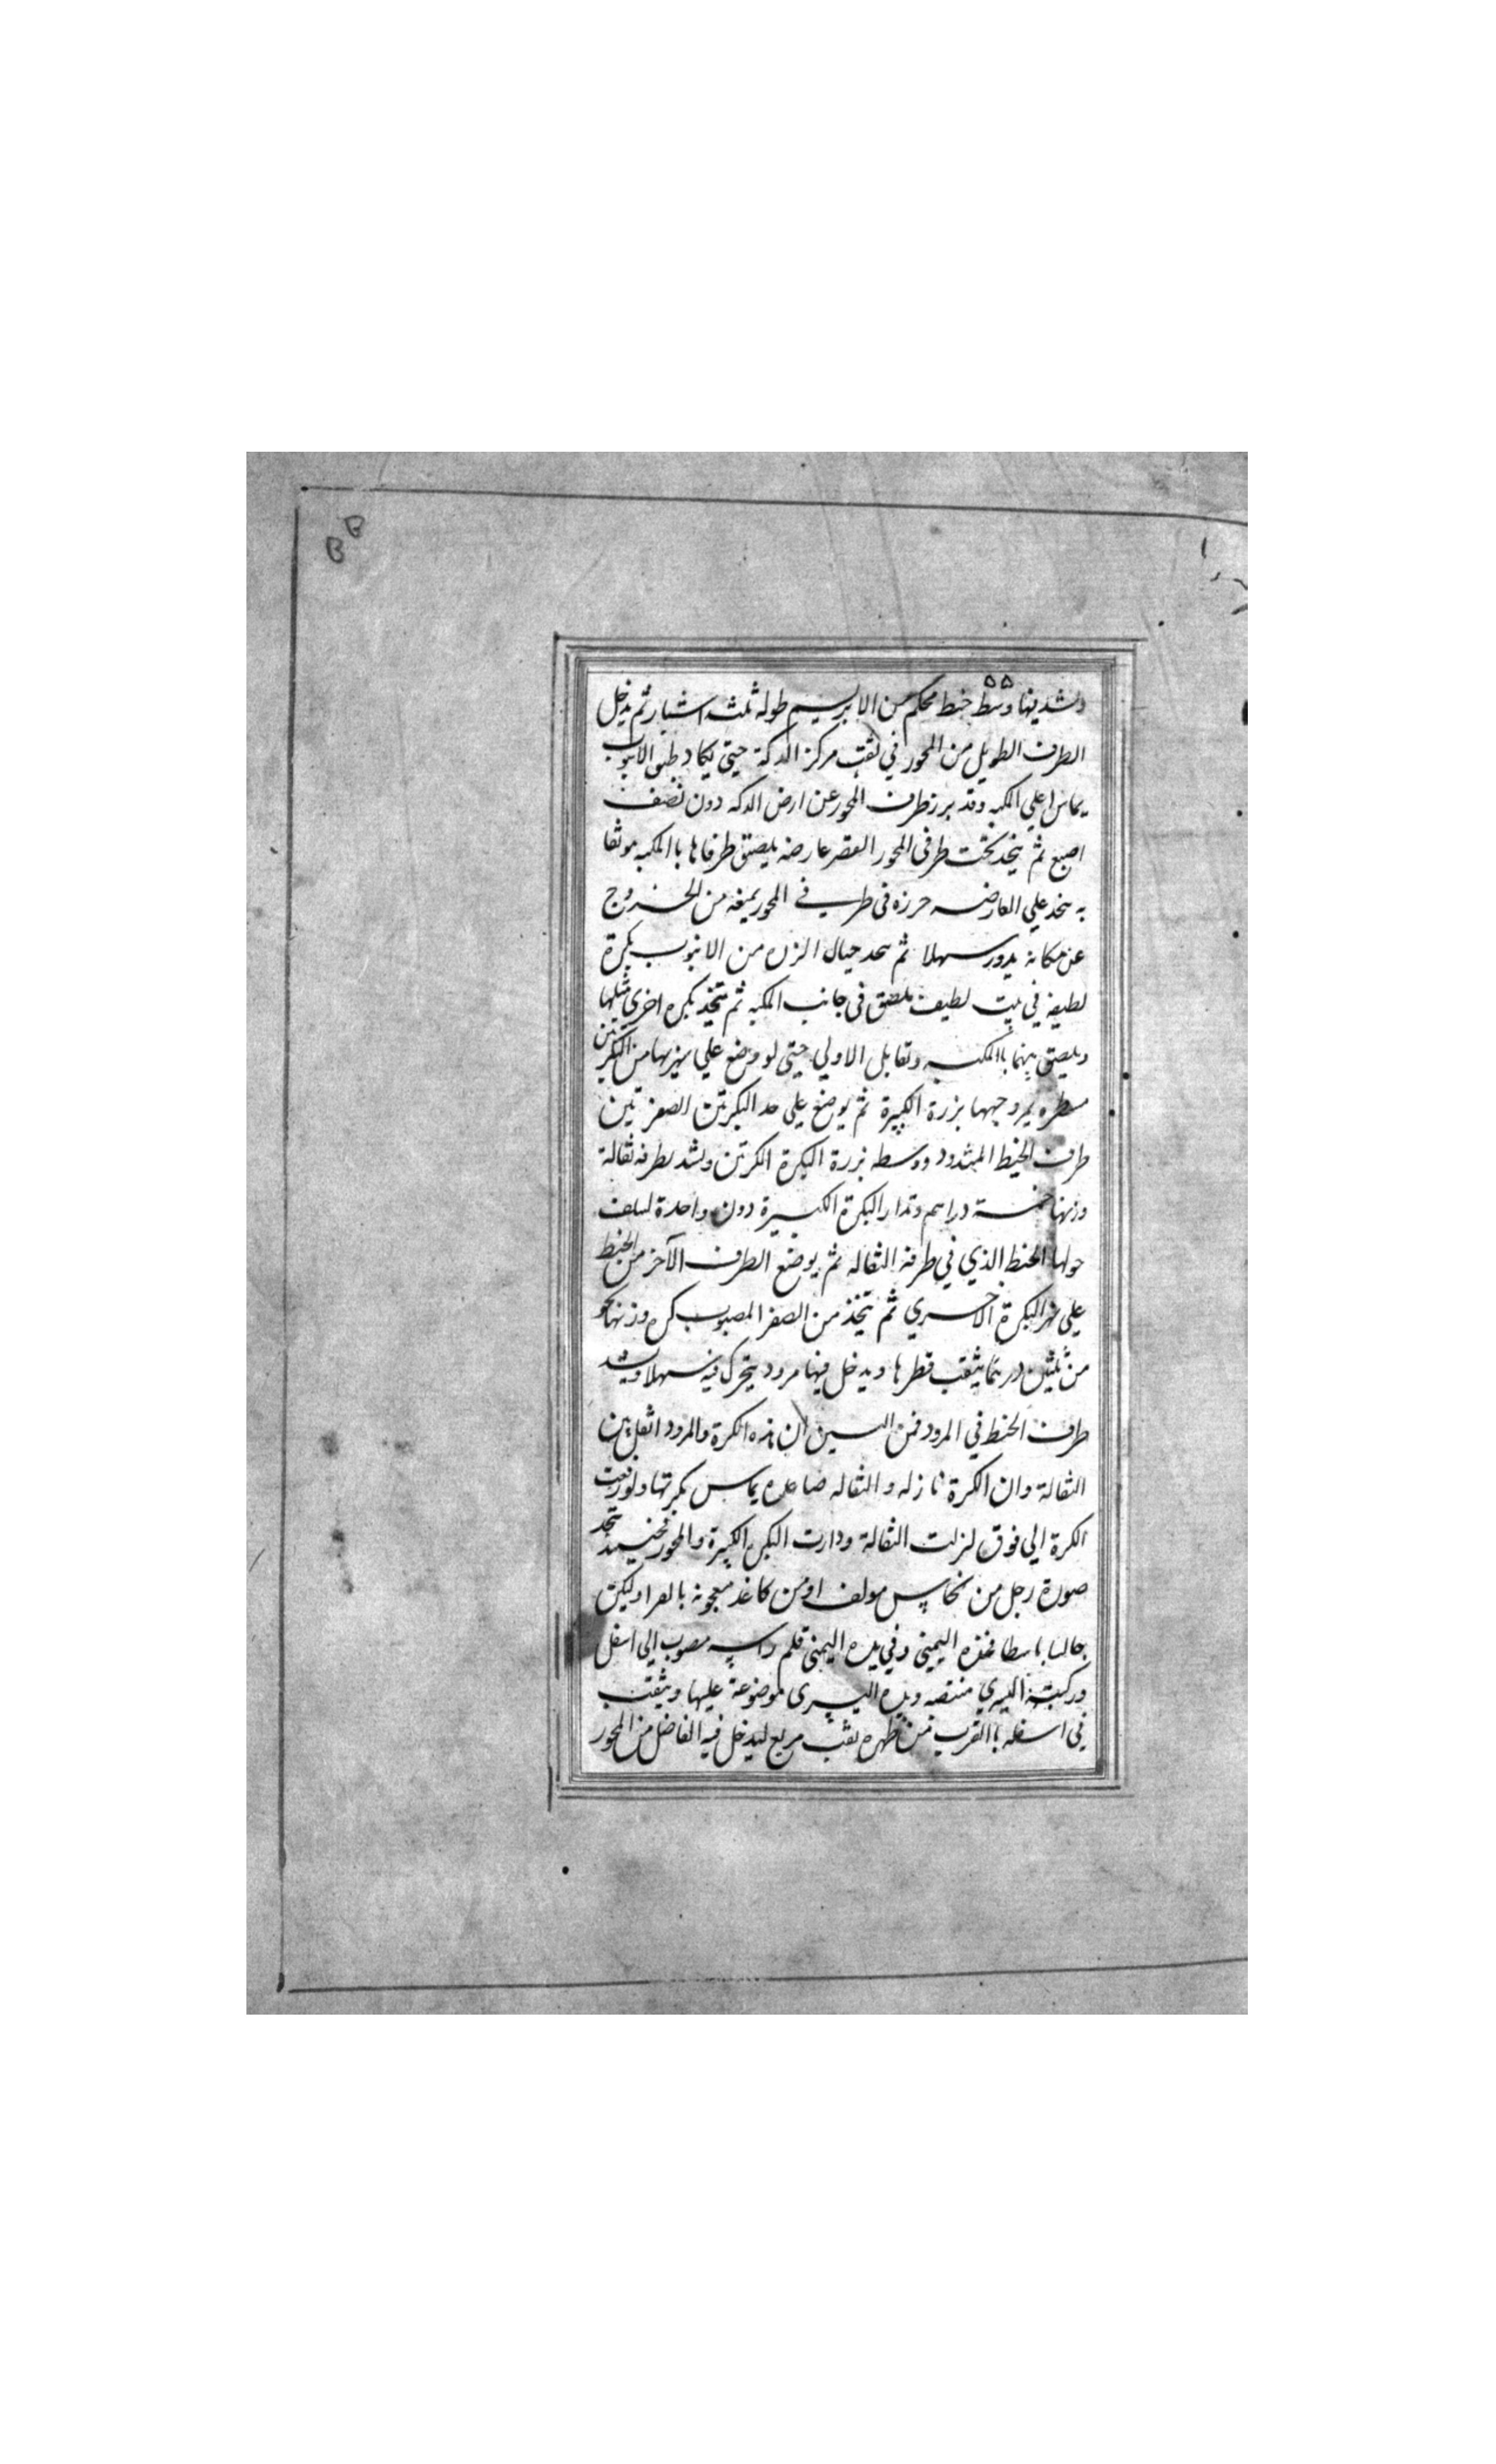 ٥٥
ويشد فيها وسط خيط محكم من الابريسم طوله ثلثة اشبار ثم يدخل
الطرف الطويل من المحور في ثقب مركز الدكة حتى يكاد طبق الانبوب
يماس اعلي المكبه وقد برز طرف المحور عن ارض الدكه دون نصف
اصبع ثم يتخذ تحت طرفي المحور القصر عارضه يلصق طرفاها بالمكبه موثقا
به يتخذ علي العارضه حرزه في طرفي المحور يمنعه من الخروج
عن مكانه يدور سهلا ثم يتخذ حيال الزره من الانبوب بكرة
لطيفه في بيت لطيف يلصق في جانب المكبه ثم يتخذ بكره اخري مثلها
ويلصق بينها بالمكبه وتقابل الاولي حتى لو وضع علي نهريهما من البكرتين
مسطره يمر وجهها بزرة الكبيرة ثم يوضع علي حد البكرتين الصغرتين
طرف الخيط المشدود ووسطه بزرة البكرة الكرتن ويشد بطرفه ثقالة
وزنها خمسة دراهم وتدار البكرة الكبيرة دون واحدة ليلف
حولها الخيط الذي في طرفه الثقاله ثم يوضع الطرف الآخر من الخيط
علي نهر البكرة الاخري ثم يتخذ من الصفر المصبوب كره وزنها نحو
من ثلثين درهما يثقب قطرها ويدخل فيها مرود يتحرك فيه سهلا ويشد
طرف الخيط في المرود فمن البين ان هذه الكرة والمرود اثقل من
الثقالة وان الكرة نازله والثقاله صاعده يماس بكرتها ولو رفعت
الكرة الي فوق لنزلت الثقالة ودارت البكره الكبيرة والمحور فحينيذ يتخذ
صورة رجل من نحاس مولف او من كاغد معجونه بالغرا وليكن
جالسا باسطا فخذه اليمني وفي يده اليمني قلم راسه مصوب الي اسفل
وركبته اليسري منتصبه ويده اليسري موضوعة عليها ويثقب
في اسفله بالقرب من ظهره ثقب مربع ليدخل فيه الفاضل من المحور